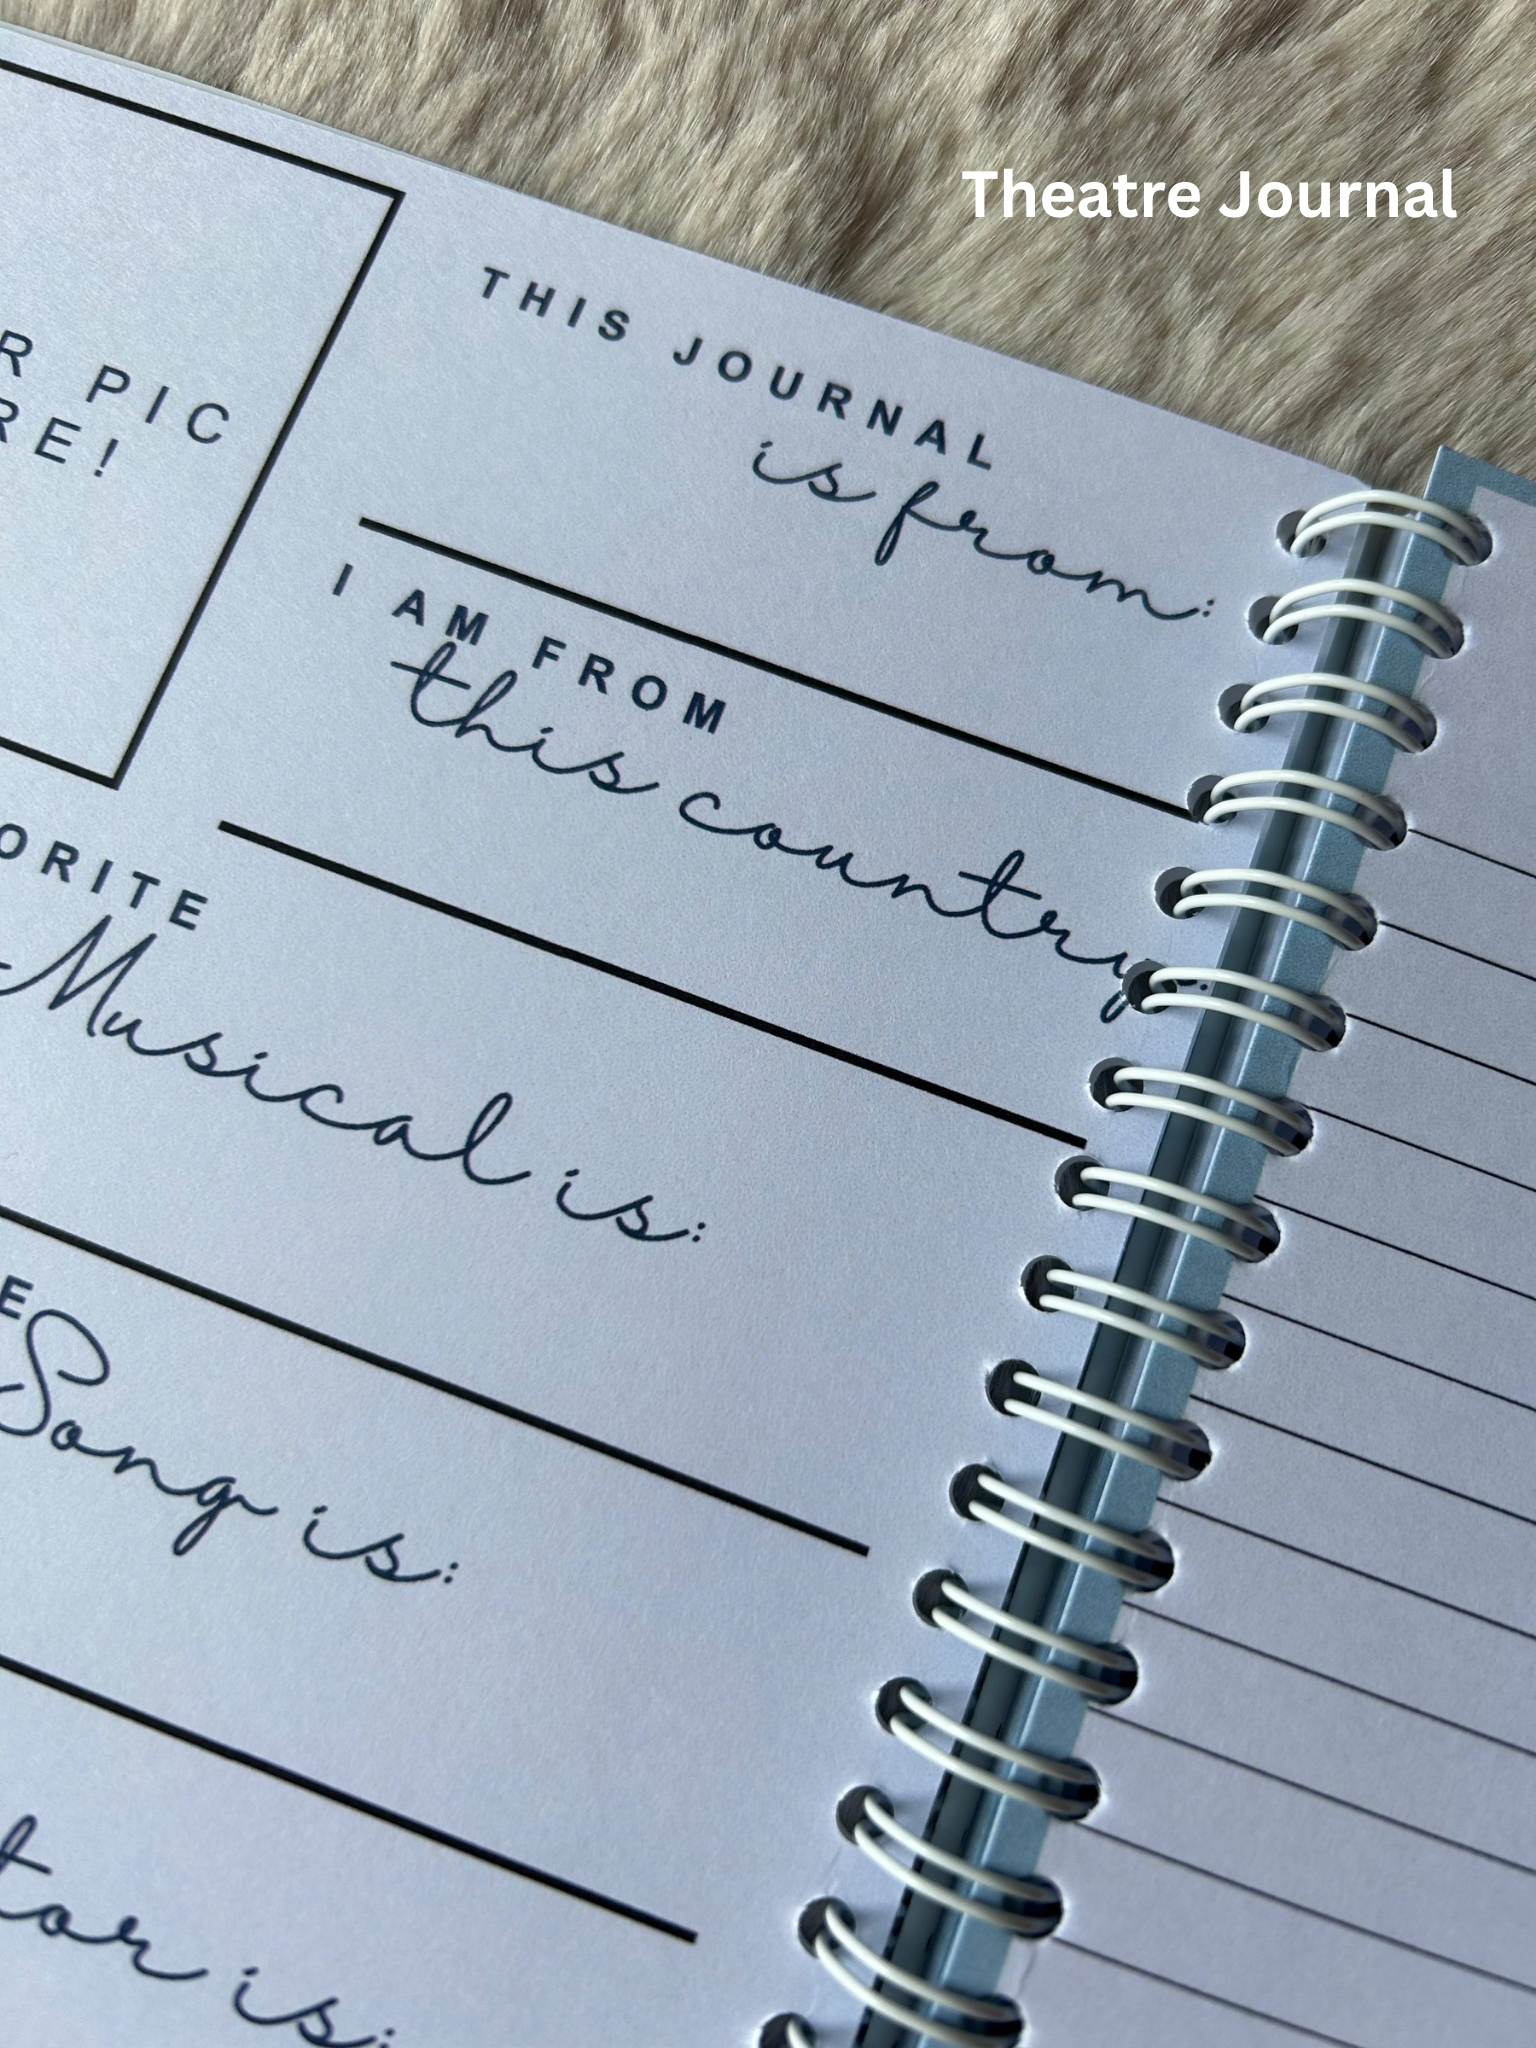 Theatre Journal
THIS JOURNAL
is from:
R PIC
RE!
I AM FROM
this country:
ORITE
Musical is:
E
Song is:
tor is: